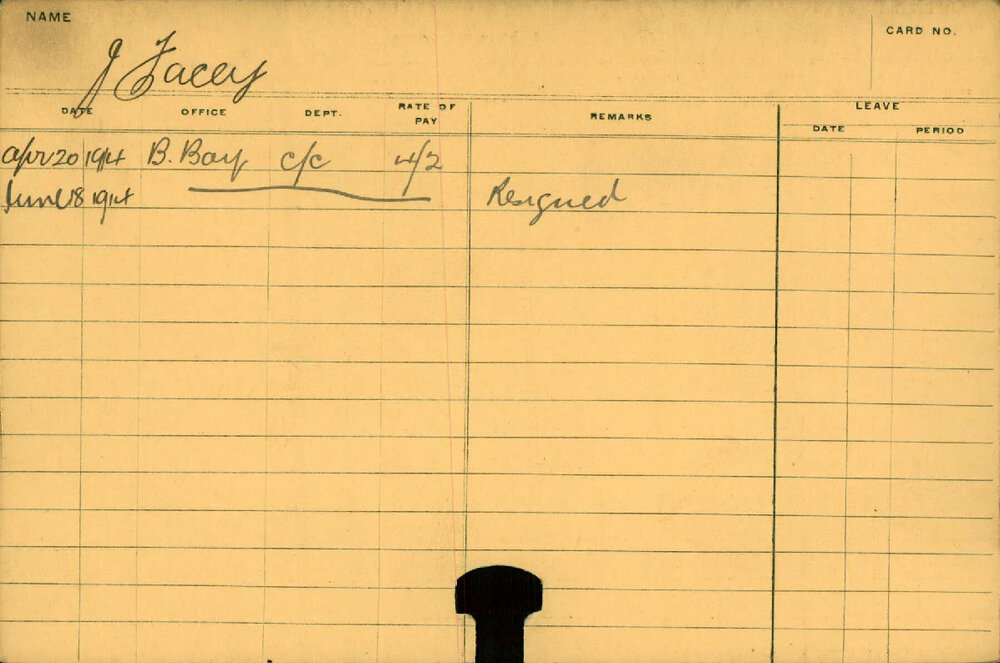 NAME
CARD NO.
J Facey
DATE OFFICE DEPT. RATE OF PAY REMARKS LEAVE
DATE PERIOD
Apr 20 1914 B. Bay c/c 4/2
June 18 1914 Resigned